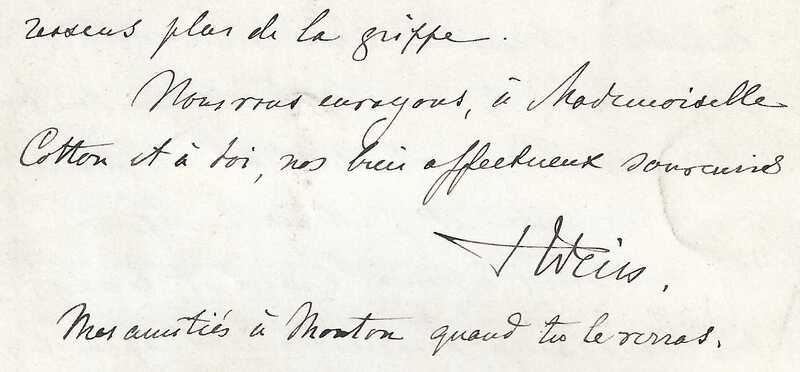 ressens plus de la grippe.
Nous vous envoyons, à Mademoiselle
Cotton et à toi, nos bien affectueux souvenirs
Weiss.
Mes amitiés à Mouton quand tu le verras.